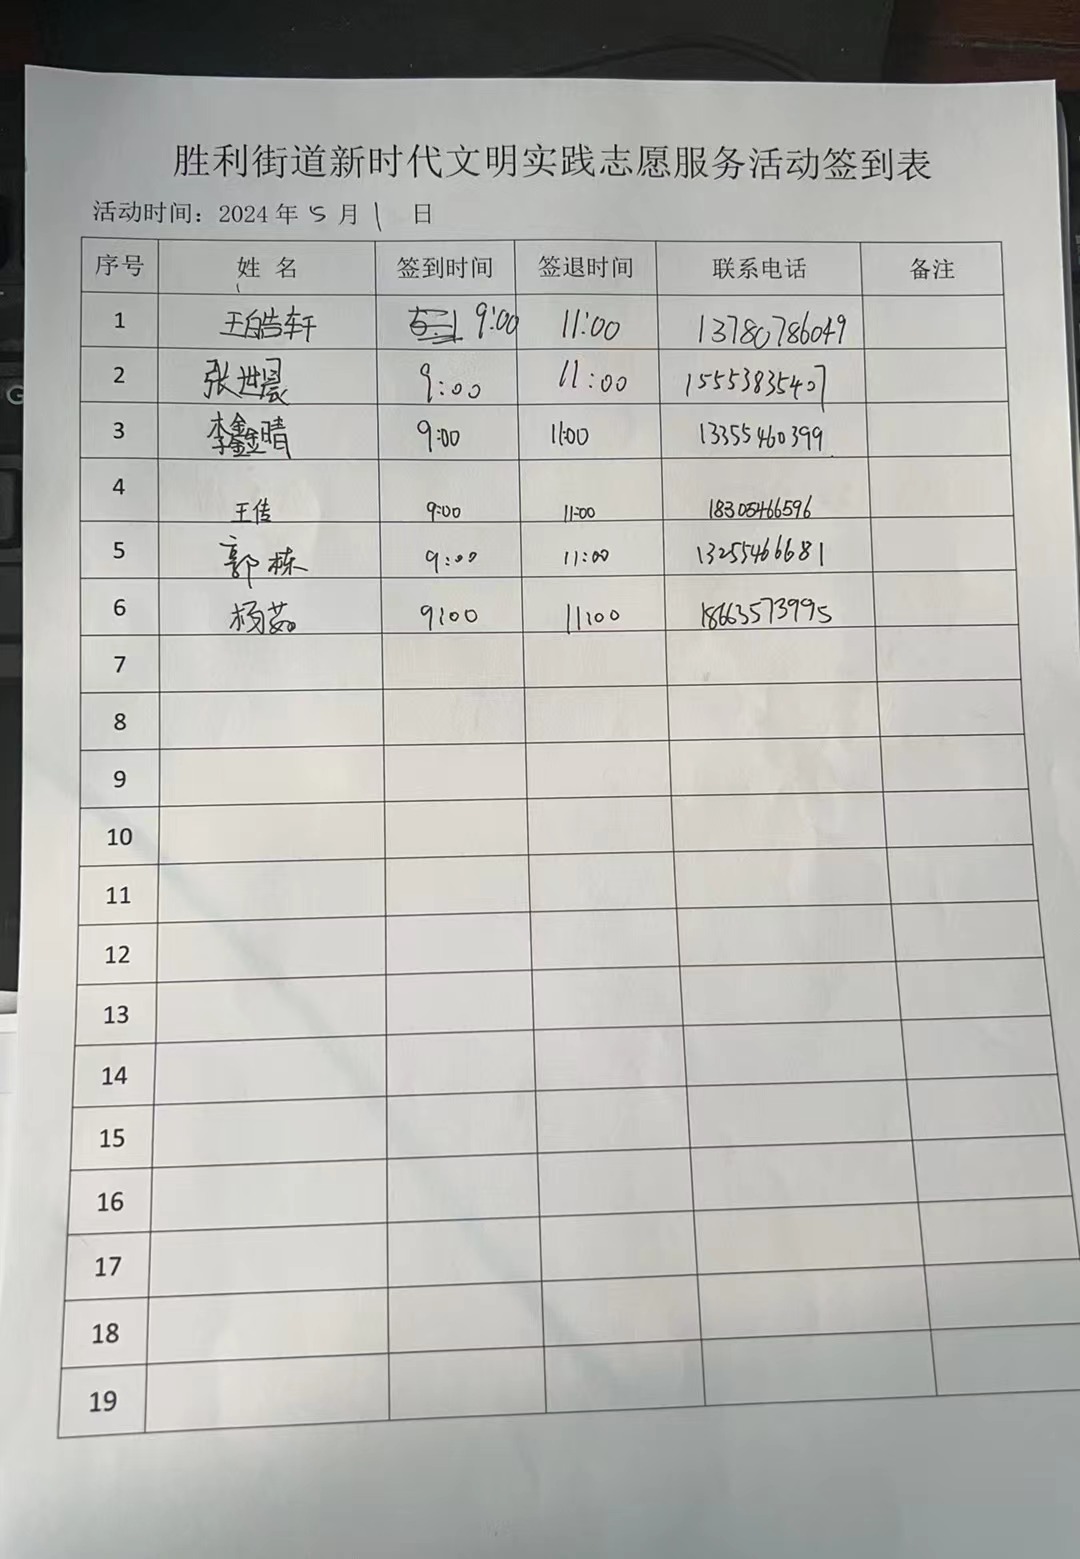 胜利街道新时代文明实践志愿服务活动签到表
活动时间：2024年5月1日
序号 姓名 签到时间 签退时间 联系电话 备注
1 王皓轩 9:00 11:00 13780786049
2 张世晨 9:00 11:00 15553835407
3 李鑫晴 9:00 11:00 13355460399
4 王传 9:00 11:00 18305466596
5 郭栋 9:00 11:00 13255466681
6 杨茹 9:00 11:00 18663573995
7
8
9
10
11
12
13
14
15
16
17
18
19